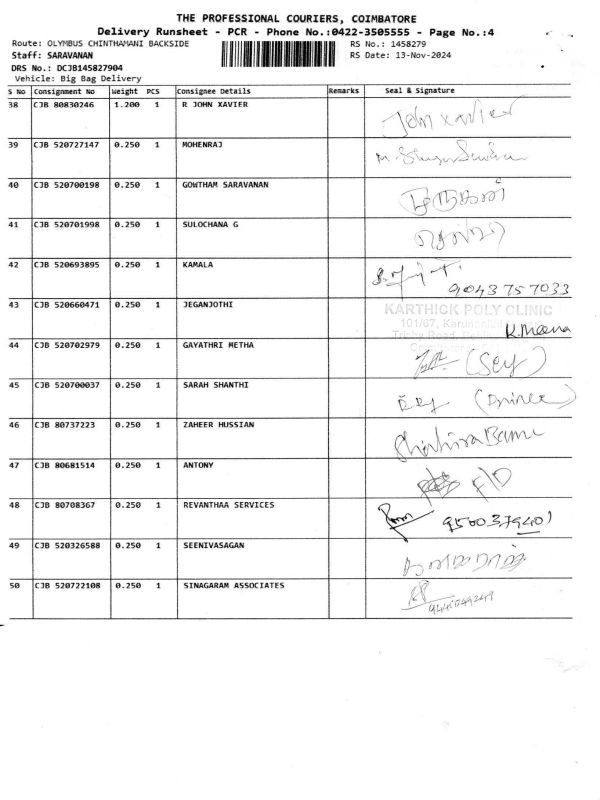 THE PROFESSIONAL COURIERS, COIMBATORE
Delivery Runsheet - PCR - Phone No.:0422-3505555 - Page No.:4
Route: OLYMBUS CHINTHAMANI BACKSIDE RS No.: 1458279
Staff: SARAVANAN RS Date: 13-Nov-2024
DRS No.: DCJB145827904
Vehicle: Big Bag Delivery
S No Consignment No Weight PCS Consignee Details Remarks Seal & Signature
38 CJB 80830246 1.200 1 R JOHN XAVIER John Xavier
39 CJB 520727147 0.250 1 MOHENRAJ
40 CJB 520700198 0.250 1 GOWTHAM SARAVANAN
41 CJB 520701998 0.250 1 SULOCHANA G
42 CJB 520693895 0.250 1 KAMALA 9043757033
43 CJB 520660471 0.250 1 JEGANJOTHI KARTHICK POLY CLINIC
101/67,
K. Meena
44 CJB 520702979 0.250 1 GAYATHRI METHA
45 CJB 520700037 0.250 1 SARAH SHANTHI
46 CJB 80737223 0.250 1 ZAHEER HUSSIAN
47 CJB 80681514 0.250 1 ANTONY F/D
48 CJB 80708367 0.250 1 REVANTHAA SERVICES 9500379401
49 CJB 520326588 0.250 1 SEENIVASAGAN
50 CJB 520722108 0.250 1 SINAGARAM ASSOCIATES